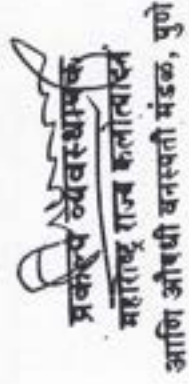 प्रकल्प व्यवस्थापक,
महाराष्ट्र राज्य फलोत्पादन
आणि औषधी वनस्पती मंडळ, पुणे